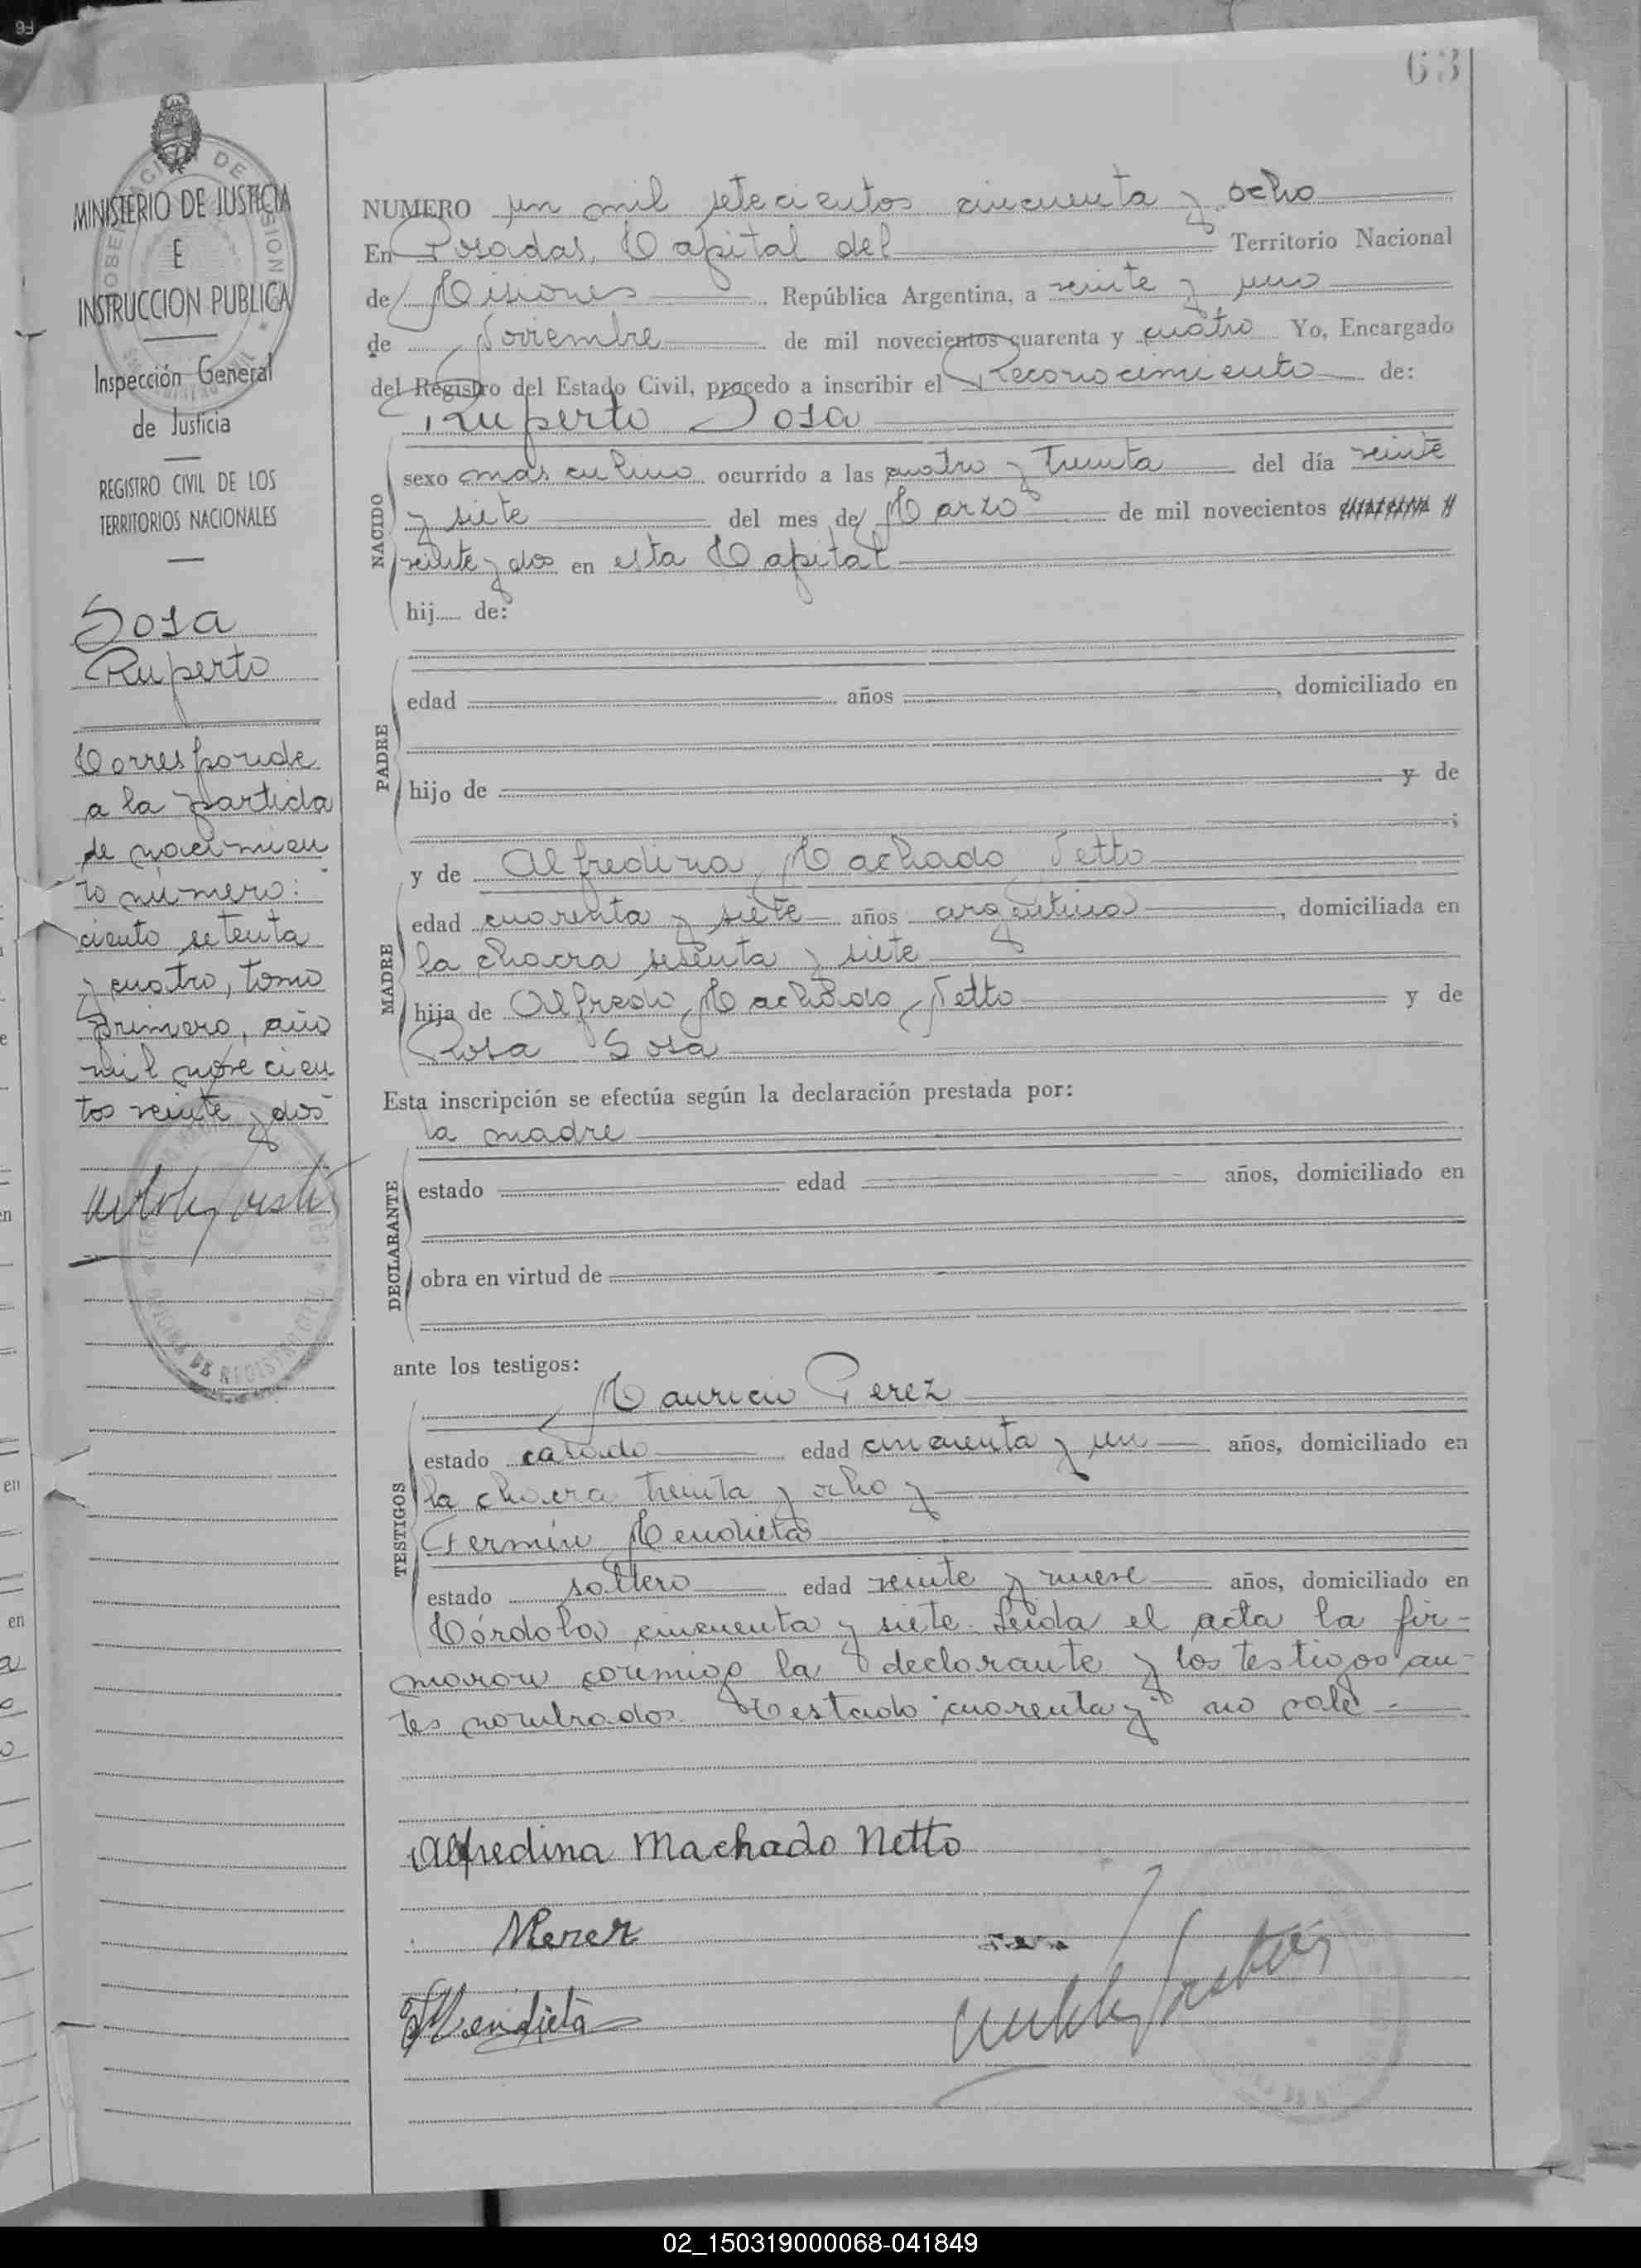 63
MINISTERIO DE JUSTICIA
E
INSTRUCCION PUBLICA
Inspección General
de Justicia
REGISTRO CIVIL DE LOS
TERRITORIOS NACIONALES
Sosa
Ruperto
Corresponde
a la partida
de nacimien
to número:
ciento setenta
y cuatro, tomo
primero, año
mil novecien
tos veinte y dos
NUMERO un mil setecientos cincuenta y ocho
En Posadas, Capital del Territorio Nacional
de Misiones República Argentina, a veinte y uno
de Noviembre de mil novecientos cuarenta y cuatro Yo, Encargado
del Registro del Estado Civil, procedo a inscribir el Reconocimiento de:
Ruperto Sosa
NACIDO
sexo masculino ocurrido a las cuatro y treinta del día veinte
y siete del mes de Marzo de mil novecientos cuarenta y
veinte y dos en esta Capital
hij..... de:
PADRE
edad años , domiciliado en
hijo de y de
;
y de Alfredina Machado Netto
MADRE
edad cuarenta y siete años argentina , domiciliada en
la chacra sesenta y siete
hija de Alfredo Machado Netto y de
Rosa Sosa
Esta inscripción se efectúa según la declaración prestada por:
la madre
DECLARANTE
estado edad años, domiciliado en
obra en virtud de
ante los testigos:
Mauricio Perez
TESTIGOS
estado casado edad cincuenta y un años, domiciliado en
la chacra treinta y ocho y
Fermín Mendieta
estado soltero edad veinte y nueve años, domiciliado en
Córdoba cincuenta y siete. Leida el acta la fir-
maron conmigo la declarante y los testigos an-
tes nombrados. Testado "cuarenta y" no vale.-
Alfredina Machado Netto
MPerez
FMendieta
02_150319000068-041849